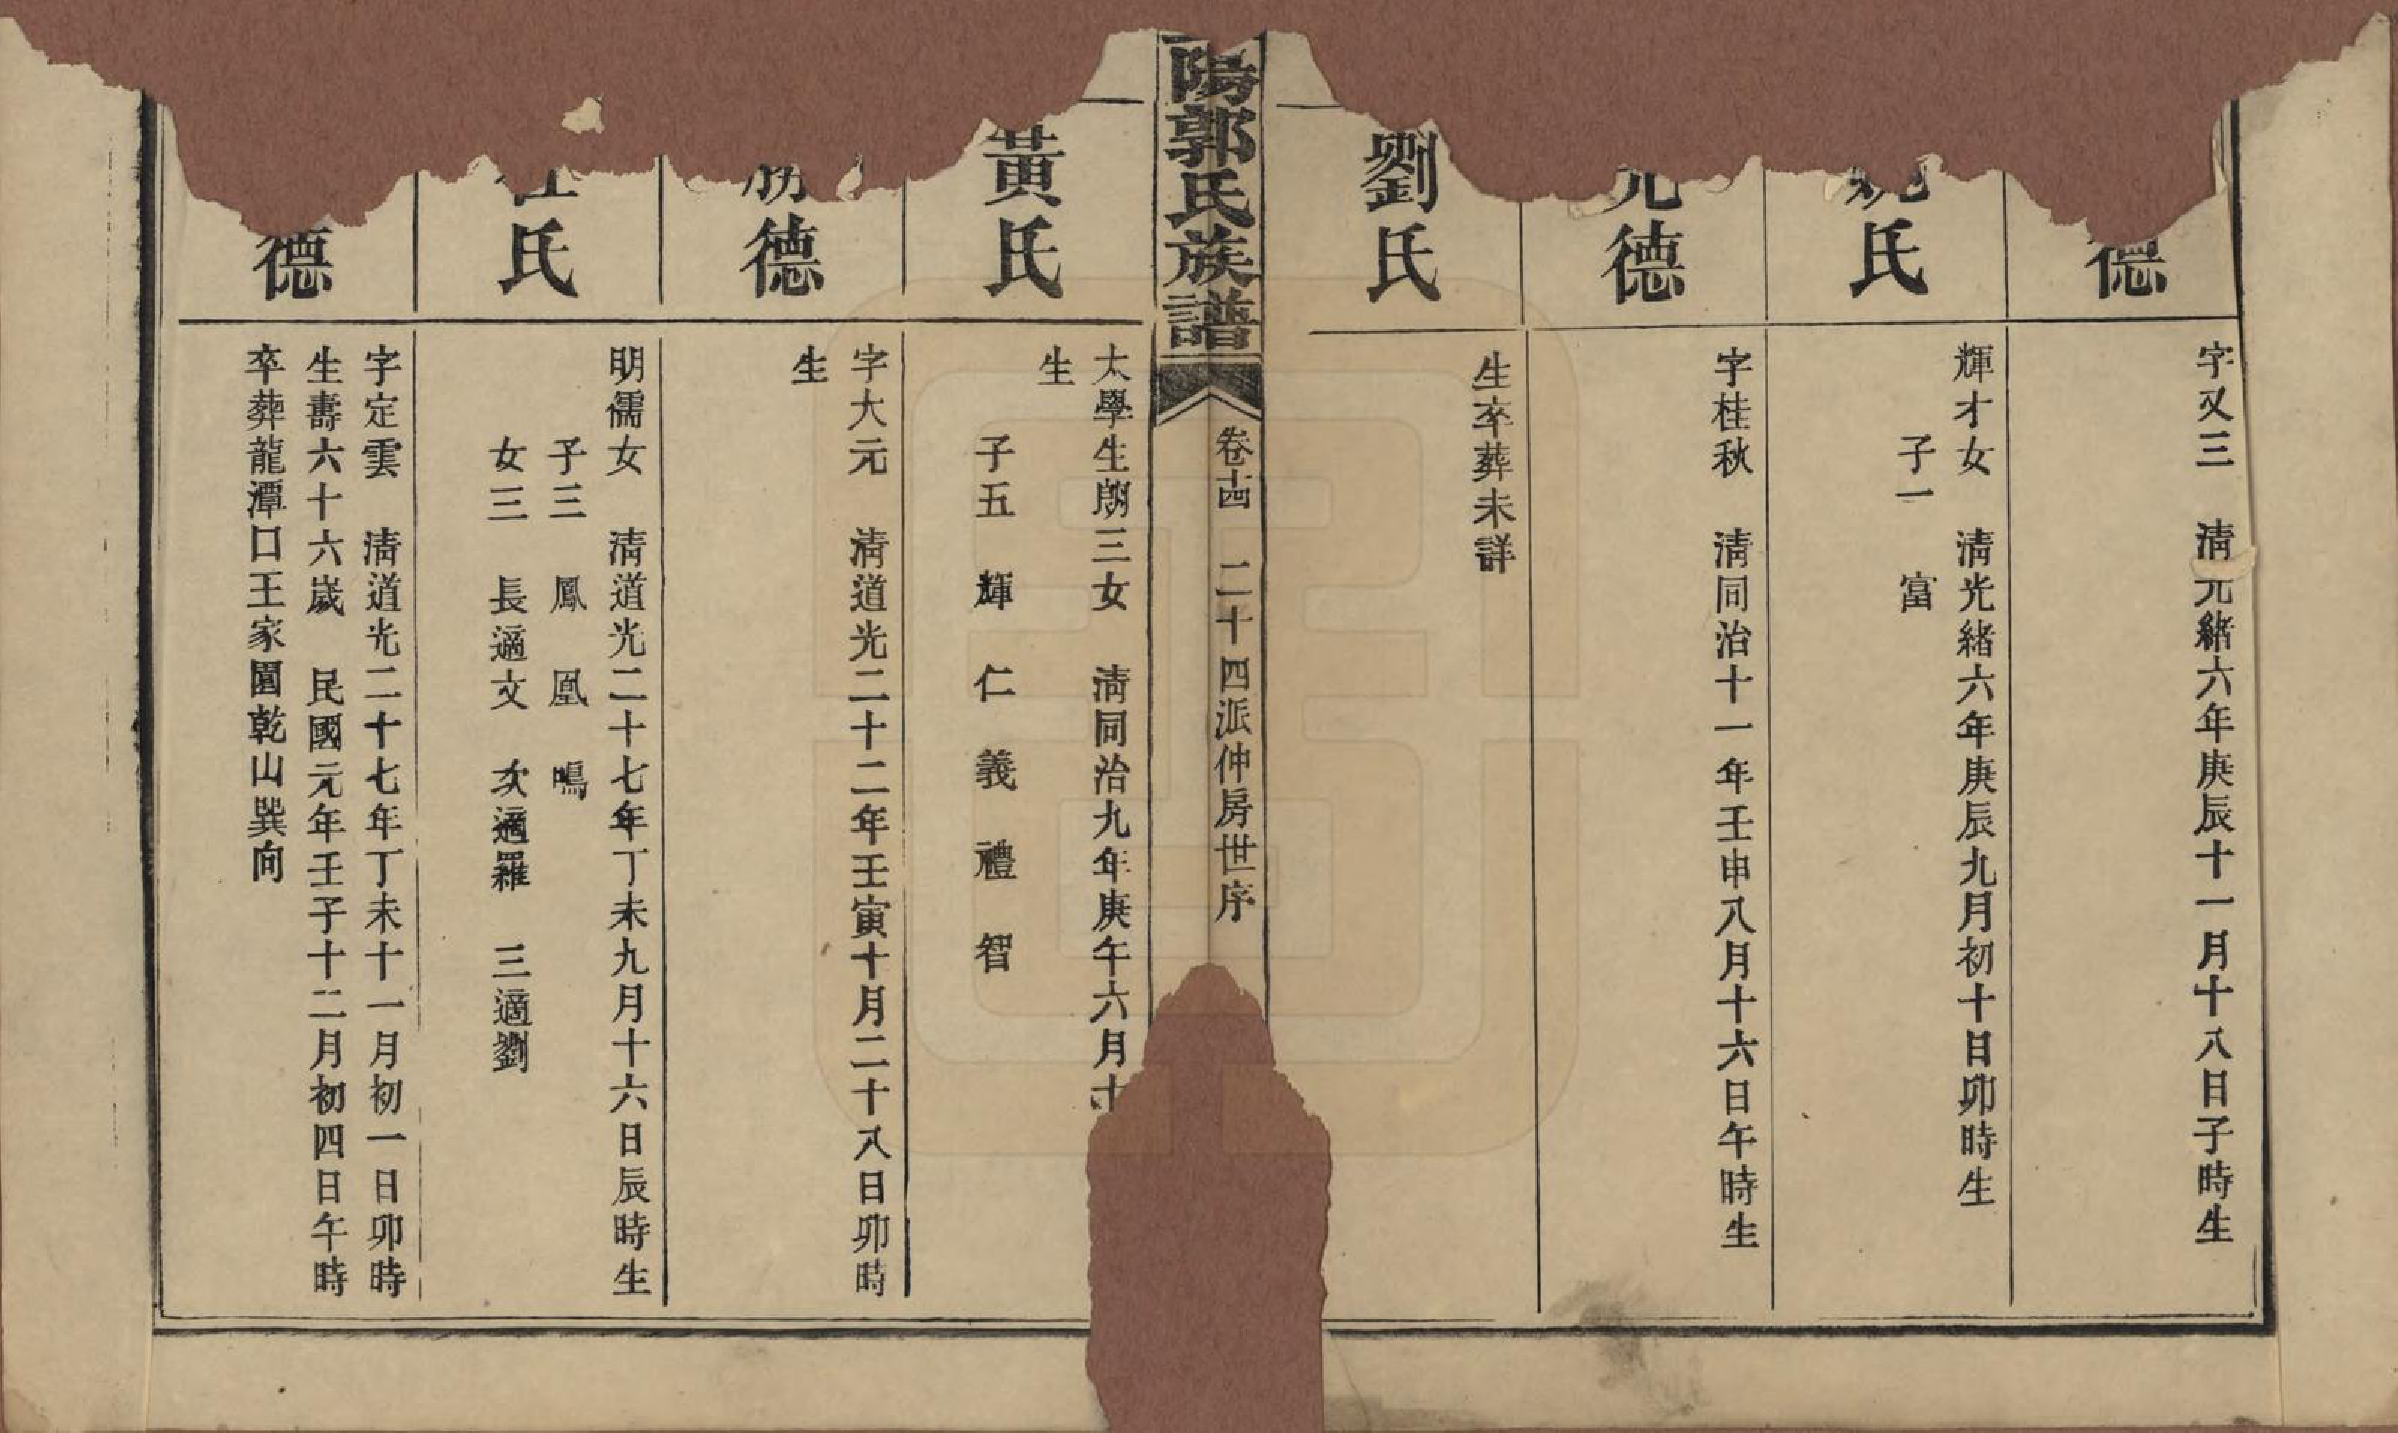 德
字又三　清光緒六年庚辰十一月十八日子時生
氏
輝才女　清光緒六年庚辰九月初十日卯時生
子一　富
德
字桂秋　清同治十一年壬申八月十六日午時生
劉氏
生卒葬未詳
陽郭氏族譜
卷十四　二十四派仲房世序
黃氏
太學生朗三女　清同治九年庚午六月十
生
子五　輝　仁　義　禮　智
德
字大元　清道光二十二年壬寅十月二十八日卯時
生
氏
明儒女　清道光二十七年丁未九月十六日辰時生
子三　鳳　凰　鳴
女三　長適文　次適羅　三適劉
德
字定雲　清道光二十七年丁未十一月初一日卯時
生壽六十六歲　民國元年壬子十二月初四日午時
卒葬龍潭口王家園乾山巽向